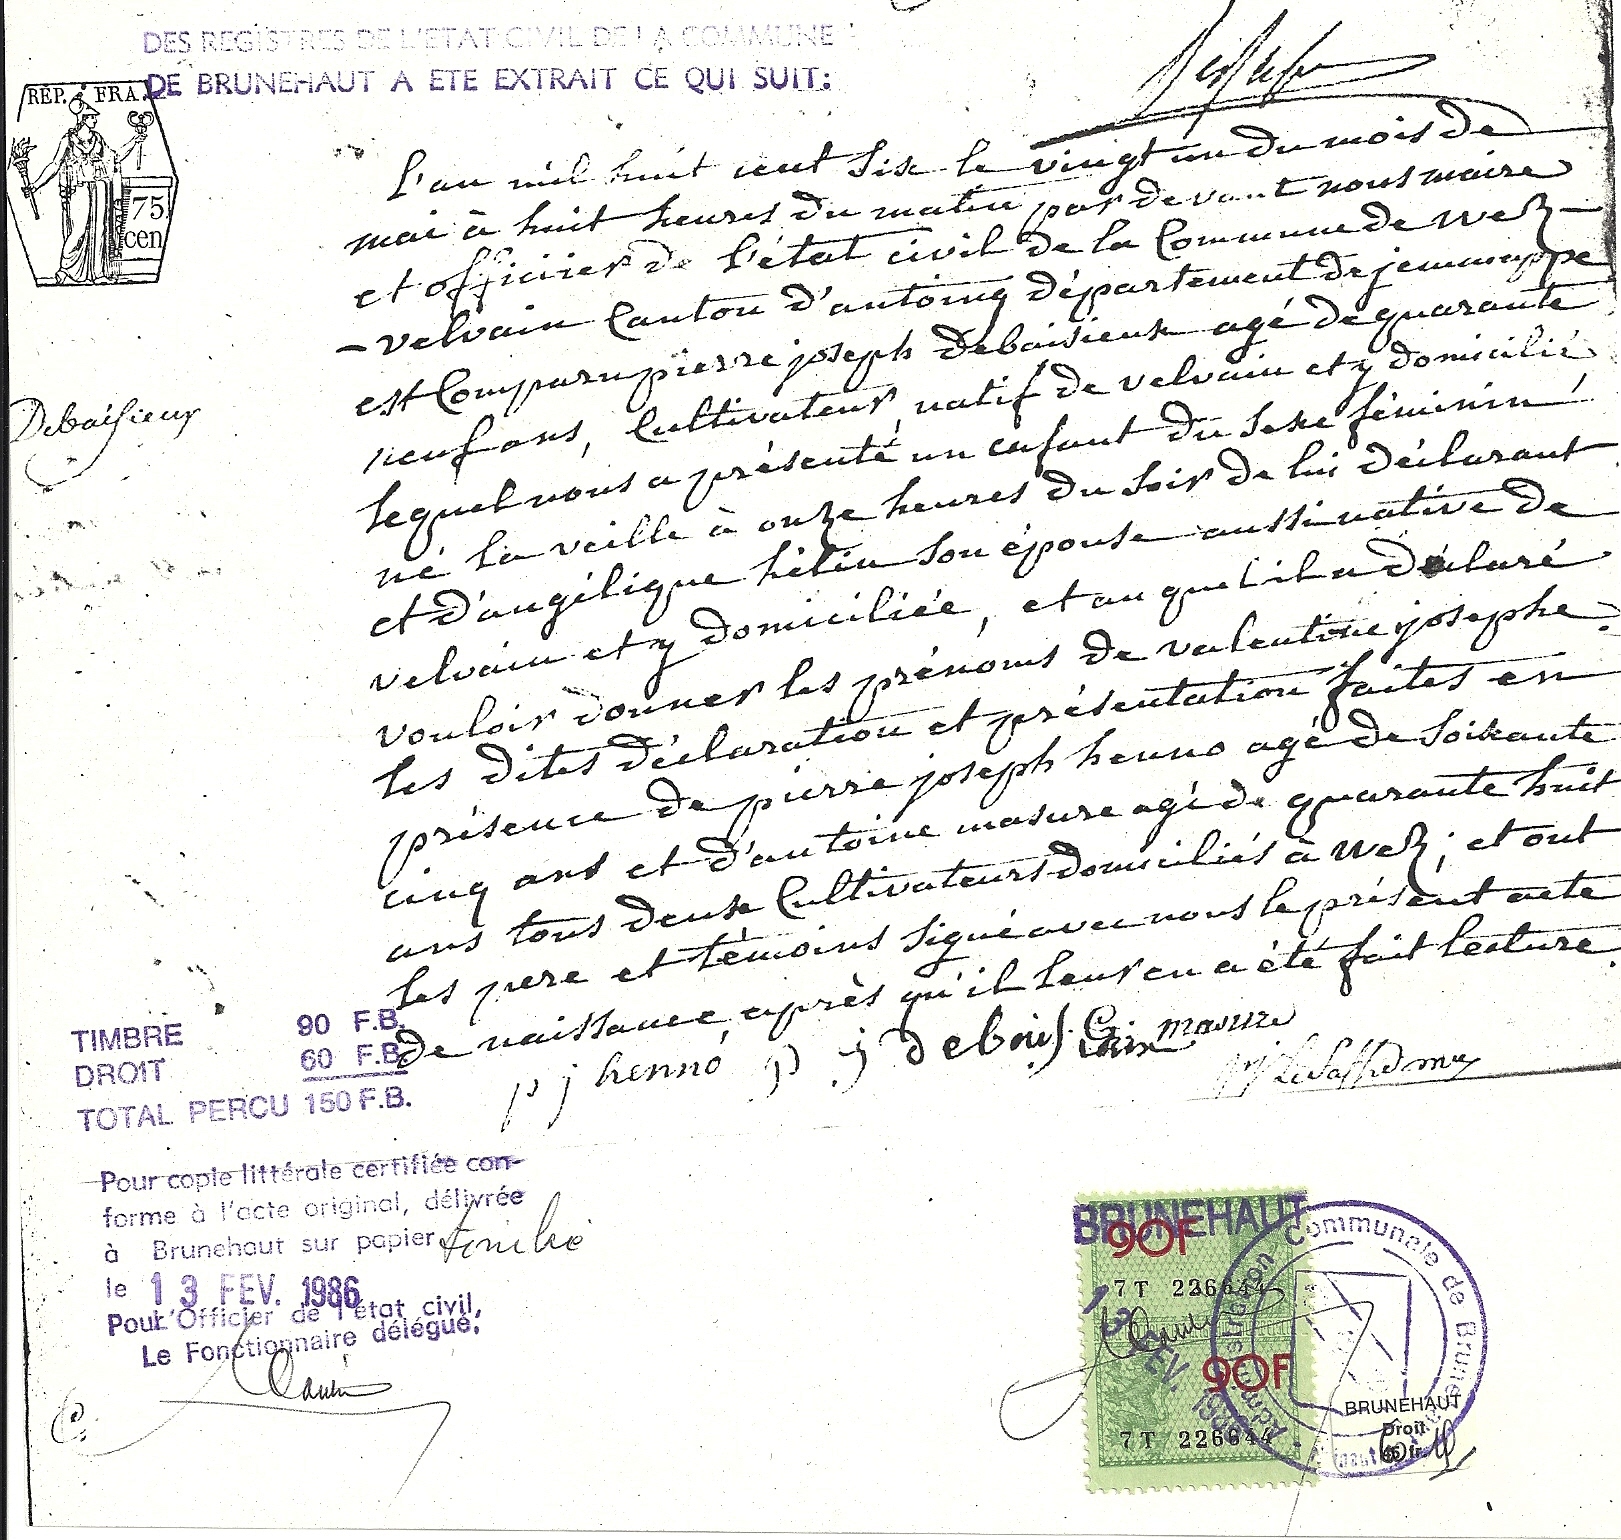 DES REGISTRES DE L'ETAT CIVIL DE LA COMMUNE
DE BRUNEHAUT A ETE EXTRAIT CE QUI SUIT:
REP. FRA.
75
cen
L'an mil huit cent six le vingt un du mois de
mai à huit heures du matin par devant nous maire
et officier de l'état civil de la Commune de Wez-
-velvain Canton d'antoing département de jemmappe
est Comparu pierre joseph debaisieux agé de quarante
neuf ans, Cultivateur natif de velvain et y domicilié
lequel nous a présenté un enfant du sexe féminin
né la veille à onze heures du soir de lui déclarant
et d'angélique hélin son épouse aussi native de
velvain et y domiciliée, et auquel il a déclaré
vouloir donner les prénoms de valentine josephe.
les dites déclaration et présentation faites en
présence de pierre joseph henno agé de soixante
cinq ans et d'antoine masure agé de quarante huit
ans tous deux Cultivateurs domiciliés à Wez; et ont
les pere et témoins signé avec nous le présent acte
de naissance, après qu'il leur en a été fait lecture.
Debaisieux
p j henno p j debais masure
TIMBRE 90 F.B.
DROIT 60 F.B.
TOTAL PERCU 150 F.B.
Pour copie littérale certifiée con-
forme à l'acte original, délivrée
à Brunehaut sur papier timbré
le 13 FEV. 1986
Pour l'Officier de l'état civil,
Le Fonctionnaire délégué,
BRUNEHAUT
90F
7T 226644
13 FEV. 1986
90F
7T 226644
Administration Communale de Brunehaut
BRUNEHAUT
Droit